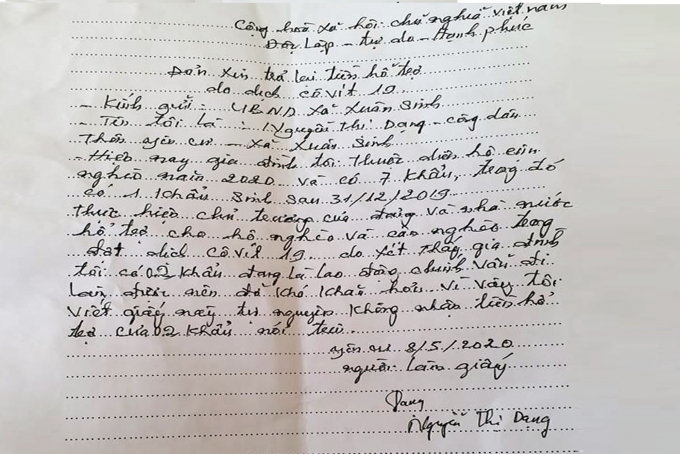 Cộng hoà xã hội chủ nghĩa việt nam
Độc Lập - tự do - Hạnh phúc
Đơn xin trả lại tiền hỗ trợ
do dịch cô vít 19
- Kính gửi: UBND xã Xuân Sinh
- Tên tôi là: Nguyễn Thị Dạng - công dân
Thôn yên cư - xã Xuân Sinh
- Hiện nay gia đình tôi thuộc diện hộ cận
nghèo năm 2020 và có 7 khẩu, trong đó
có 1 khẩu sinh sau 31/12/2019
Thực hiện chủ trương của đảng và nhà nước
hỗ trợ cho hộ nghèo và cận nghèo trong
đợt dịch cô vít 19. do xét thấy gia đình
tôi có 02 khẩu đang là lao động chính vẫn đi
làm được nên đỡ khó khăn hơn vì vậy tôi
viết giấy này tự nguyện không nhận tiền hỗ
trợ của 02 khẩu nói trên.
yên cư 8/5/2020
người làm giấy
Dạng
Nguyễn Thị Dạng